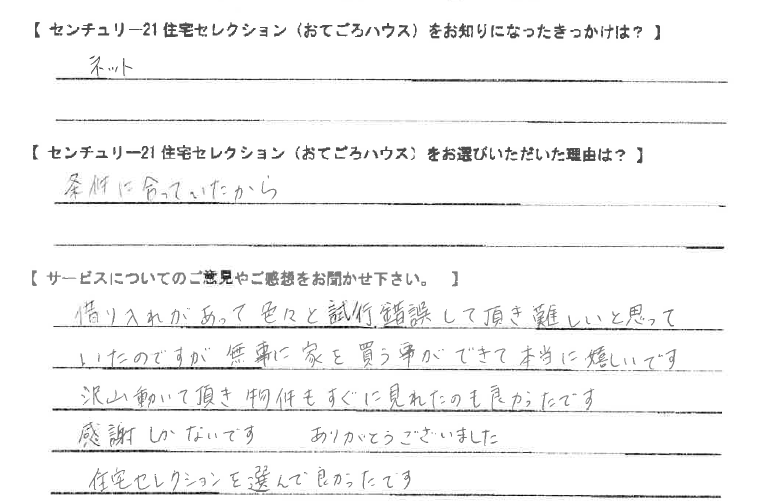 【 センチュリー21 住宅セレクション（おてごろハウス）をお知りになったきっかけは？ 】
ネット
【 センチュリー21 住宅セレクション（おてごろハウス）をお選びいただいた理由は？ 】
条件に合っていたから
【 サービスについてのご意見やご感想をお聞かせ下さい。 】
借り入れがあって色々と試行錯誤して頂き難しいと思って
いたのですが無事に家を買う事ができて本当に嬉しいです
沢山動いて頂き物件もすぐに見れたのも良かったです
感謝しかないです ありがとうございました
住宅セレクションを選んで良かったです